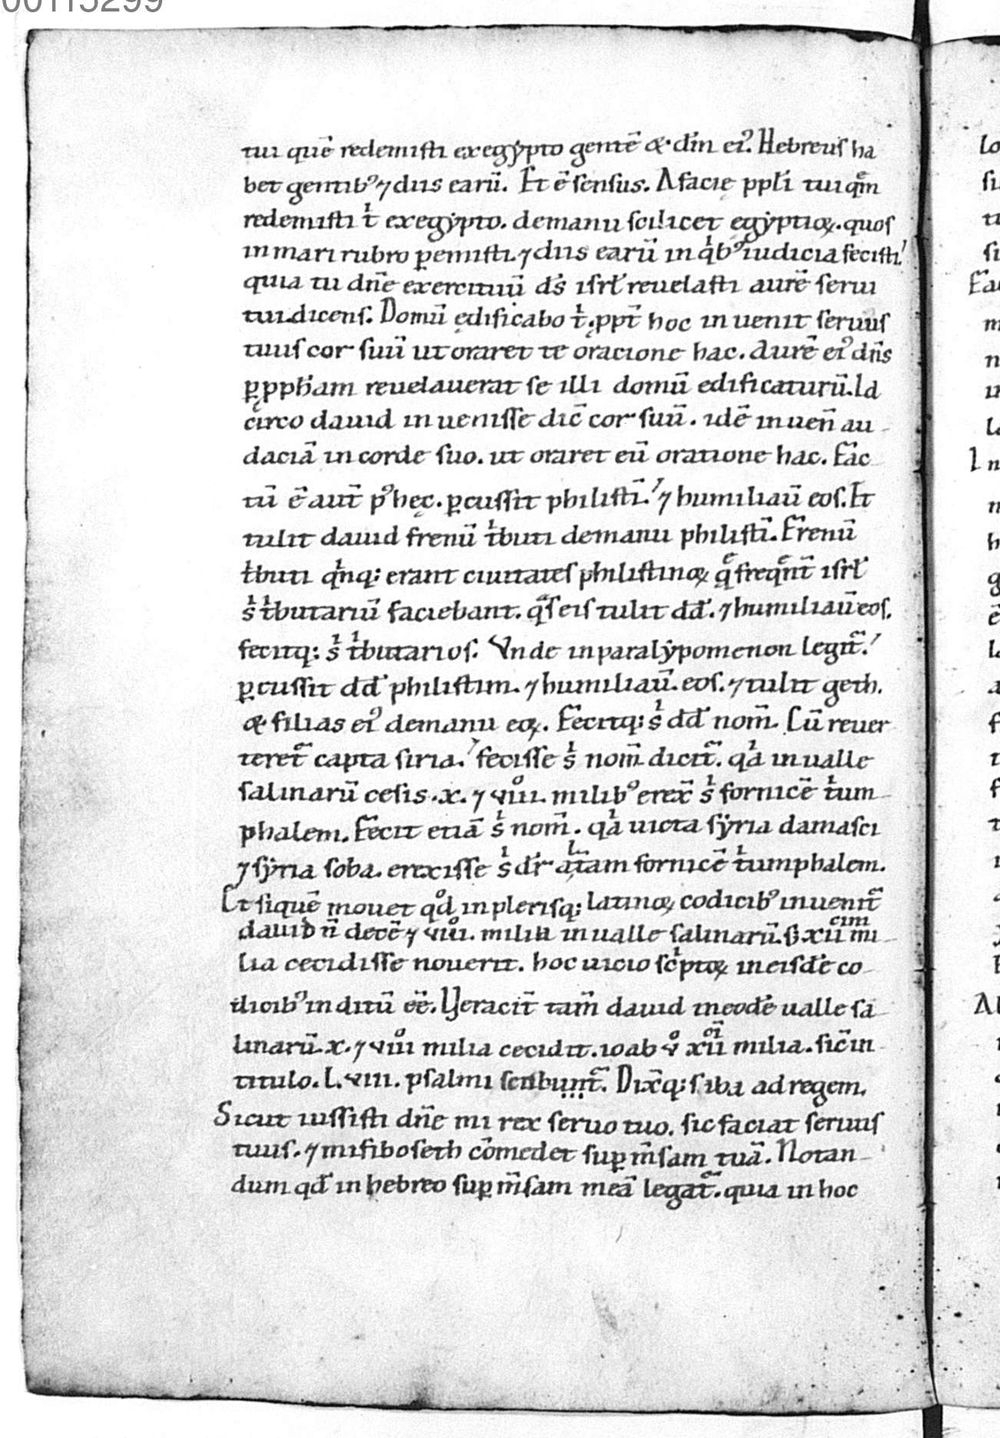 00115299
tui quē redemisti ex egẏpto gentē & dm̄ ei᾽. Hebreus ha
bet gentib᾽ ⁊ diis earū. Et ē sensus. A facie pp̄li tui quē
redemisti t̍ ex egẏpto. de manu scilicet egẏptioꝝ. quos
in mari rubro ꝑemisti. ⁊ diis earū in qͥb᾽ iudicia fecisti.
quia tu dn̄e exercituū ds̄ isrl̄ reuelasti aurē serui
tui dicens. Domū edificabo t̍. ꝓpt̄ hoc inuenit seruus
tuus cor suū ut oraret te oracione hac. Aurē ei᾽ dn̄s
ꝑ ꝓph̄am reuelauerat se illi domū edificaturū. Id
circo dauid inuenisse dic̄ cor suū. idē inuen̄ au
daciā in corde suo. ut oraret eū oratione hac. Fac̄
tū ē aut̄ p᾽ hęc. ꝑcussit philisti᷒. ⁊ humiliau᷒ eos. Et
tulit dauid frenū tͥbuti de manu philisti᷒. Frenū
tͥbuti qͥnq; erant ciuitates philistinoꝝ q̄ freqn̄t isrl̄
sͥ tͥbutariū faciebant. qͣs eis tulit dd̄. ⁊ humiliau᷒ eos.
fecitq; sͥ tͥbutarios. Vnde in paralẏpomenon legit᷒.
ꝑcussit dd̄ philistim. ⁊ humiliau᷒. eos. ⁊ tulit geth.
& filias ei᾽ de manu eoꝝ. Fecitq; sͥ dd̄ nom̄. Cū reuer
teret᷒ capta siria. fecisse sͥ nom̄ dicit᷒. qͥa in ualle
salinarū cesis .x. ⁊ viiiͦ. milib᾽ erex̄ sͥ fornicē tͥum
phalem. Fecit etiā sͥ nom̄. qͥa uicta sẏria damasci
⁊ sẏria soba. erexisse sͥ dr̄ at̄am fornicē tͥumphalem.
Et siquē mouet qd̊ in plerisq; latinoꝝ codicib᾽ inuenit᷒
dauid n̄ decē ⁊ viiiͦ. milia in ualle salinarū. s; xii cim mi
lia cecidisse nouerit. hoc uicio scͥptoꝝ in eisdē co
dicib᾽ inditū ēē. Veracit̄ tam̄ dauid in eodē ualle sa
linarū .x. ⁊ viiiͦ milia cecidit. ioab v̊ xii ci milia. sic̄ in
titulo .L.viiii. psalmi scribunt᷒. Dix̄q; siba ad regem.
Sicut iussisti dn̄e mi rex seruo tuo. sic faciat seruus
tuus. ⁊ mifiboseth cōmedet suꝑ m̄sam tuā. Notan
dum qd̄ in hebreo suꝑ m̄sam meā legat᷒. quia in hoc